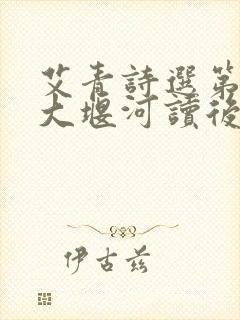 艾青詩選第
大堰河讀後
伊古茲